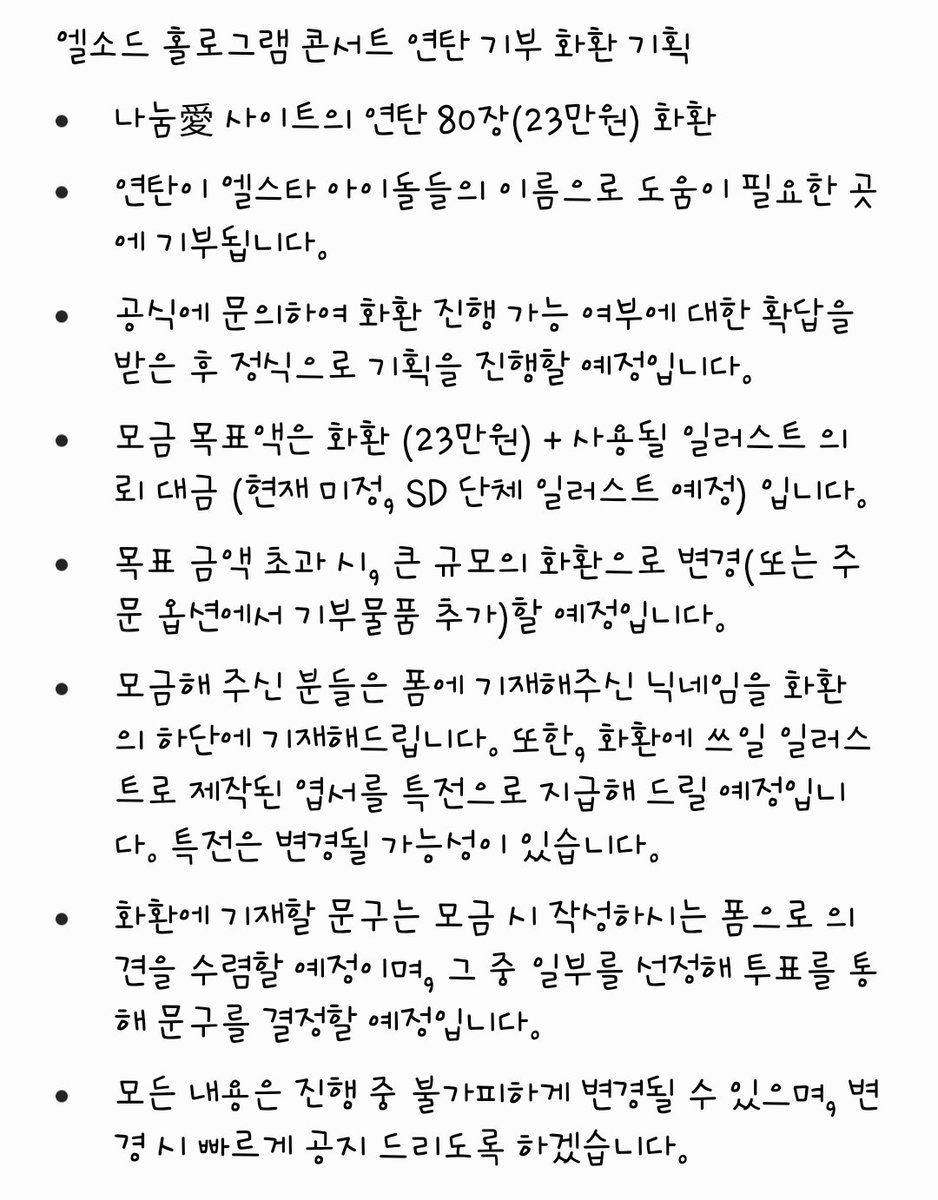 엘소드 홀로그램 콘서트 연탄 기부 화환 기획
• 나눔愛 사이트의 연탄 80장(23만원) 화환
• 연탄이 엘스타 아이돌들의 이름으로 도움이 필요한 곳
에 기부됩니다.
• 공식에 문의하여 화환 진행 가능 여부에 대한 확답을
받은 후 정식으로 기획을 진행할 예정입니다.
• 모금 목표액은 화환 (23만원) + 사용될 일러스트 의
뢰 대금 (현재 미정, SD 단체 일러스트 예정) 입니다.
• 목표 금액 초과 시, 큰 규모의 화환으로 변경(또는 주
문 옵션에서 기부물품 추가)할 예정입니다.
• 모금해 주신 분들은 폼에 기재해주신 닉네임을 화환
의 하단에 기재해드립니다. 또한, 화환에 쓰일 일러스
트로 제작된 엽서를 특전으로 지급해 드릴 예정입니
다. 특전은 변경될 가능성이 있습니다.
• 화환에 기재할 문구는 모금 시 작성하시는 폼으로 의
견을 수렴할 예정이며, 그 중 일부를 선정해 투표를 통
해 문구를 결정할 예정입니다.
• 모든 내용은 진행 중 불가피하게 변경될 수 있으며, 변
경 시 빠르게 공지 드리도록 하겠습니다.